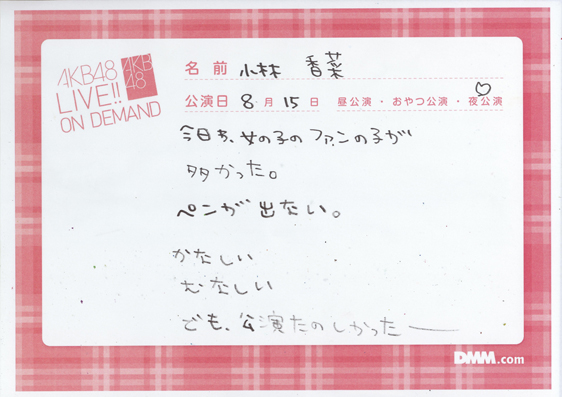 AKB48
LIVE!!
ON DEMAND
AKB
48
名前 小林 香菜
公演日 8月15日 昼公演・おやつ公演・夜公演
今日も、女の子のファンの子が
多かった。
ペンが出ない。
かなしい
むなしい
でも、公演たのしかったー
DMM.com